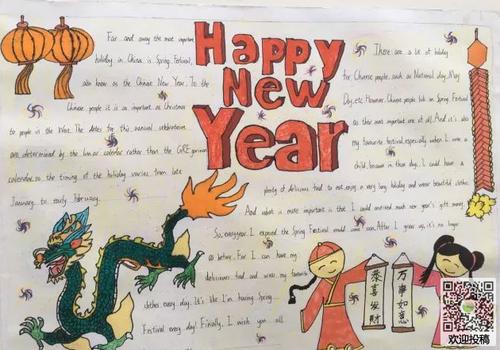 Happy
New
Year
Far and away the most important
holiday in China is Spring Festival,
also know as the Chinese New Year. To the
Chinese people it is as important as Christmas
to people in the West. The dates for this annual celebration
are determined by the lunar calendar rather than the
calendar, so the timing of the holiday varies from late
January to early February.
There are a lot of holiday
for Chinese people, such as National day, May
Day, etc. However, Chinese people look on Spring Festival
as their most important one of all. And it's also
my favourite festival, especially when I were a
child because in those day, I could have a
plenty of delicious food to eat, enjoy a very long holiday and wear beautiful clothes.
And what is more important is that I could received much new year's gift money.
So, everyyear I expected the Spring Festival would come soon. After I grew up, it's no longer
so better. For I can have my
delicious food and wear my favourite
clothes every day. It's like I'm having Spring
Festival every day. Finally, I wish you all
恭喜發財
万事如意
欢迎投稿